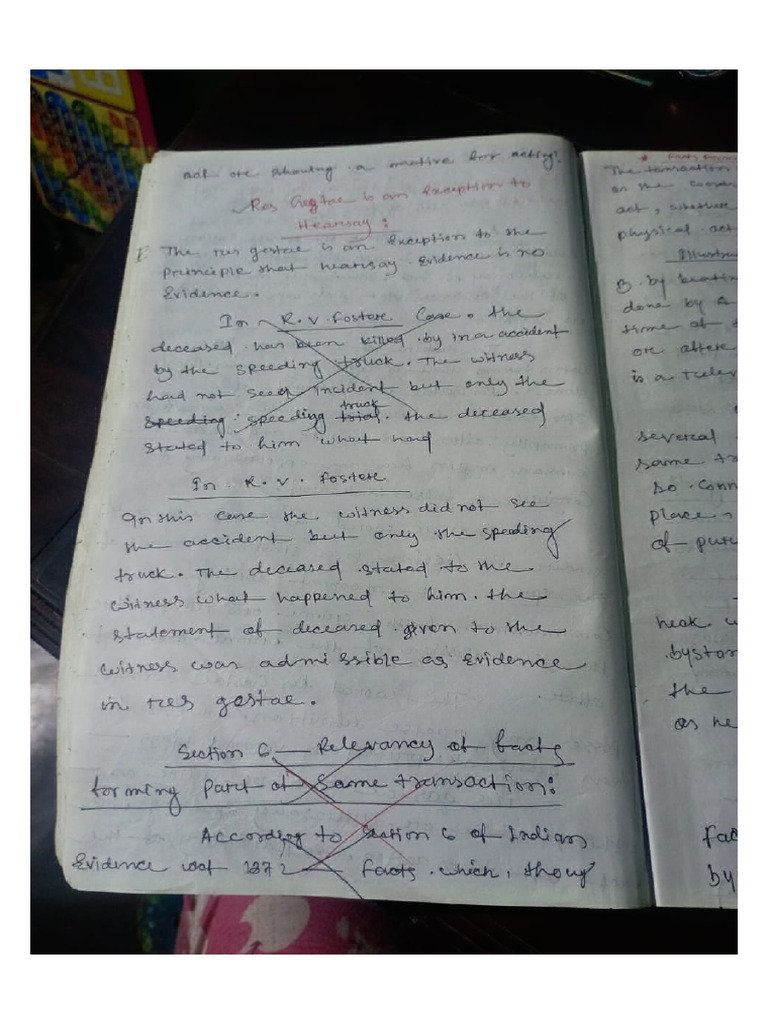 act or showing a motive for acting.
Res Gestae is an Exception to
Hearsay :
The res gestae is an Exception to the
Principle that hearsay Evidence is no
Evidence.
In R.v. Foster Case. the
deceased has been killed by in a accident
by the speeding truck. The witness
had not seen incident but only the
speeding speeding trial truck. the deceased
stated to him what had
In R.v. Foster
In this case the witness did not see
the accident but only the speeding
truck. The deceased stated to the
witness what happened to him. the
statement of deceased given to the
witness was admissible as Evidence
in res gestae.
Section 6 — Relevancy of facts
forming part of same transaction:
According to Section 6 of Indian
Evidence act 1872 — facts which, thoug
The transaction
as the
act, whether
physical act
Illustr
B by beatin
done by A
time of
or after
is a relev
several
same tr
so conn
place
of
heak
bystan
the
as he
fac
by